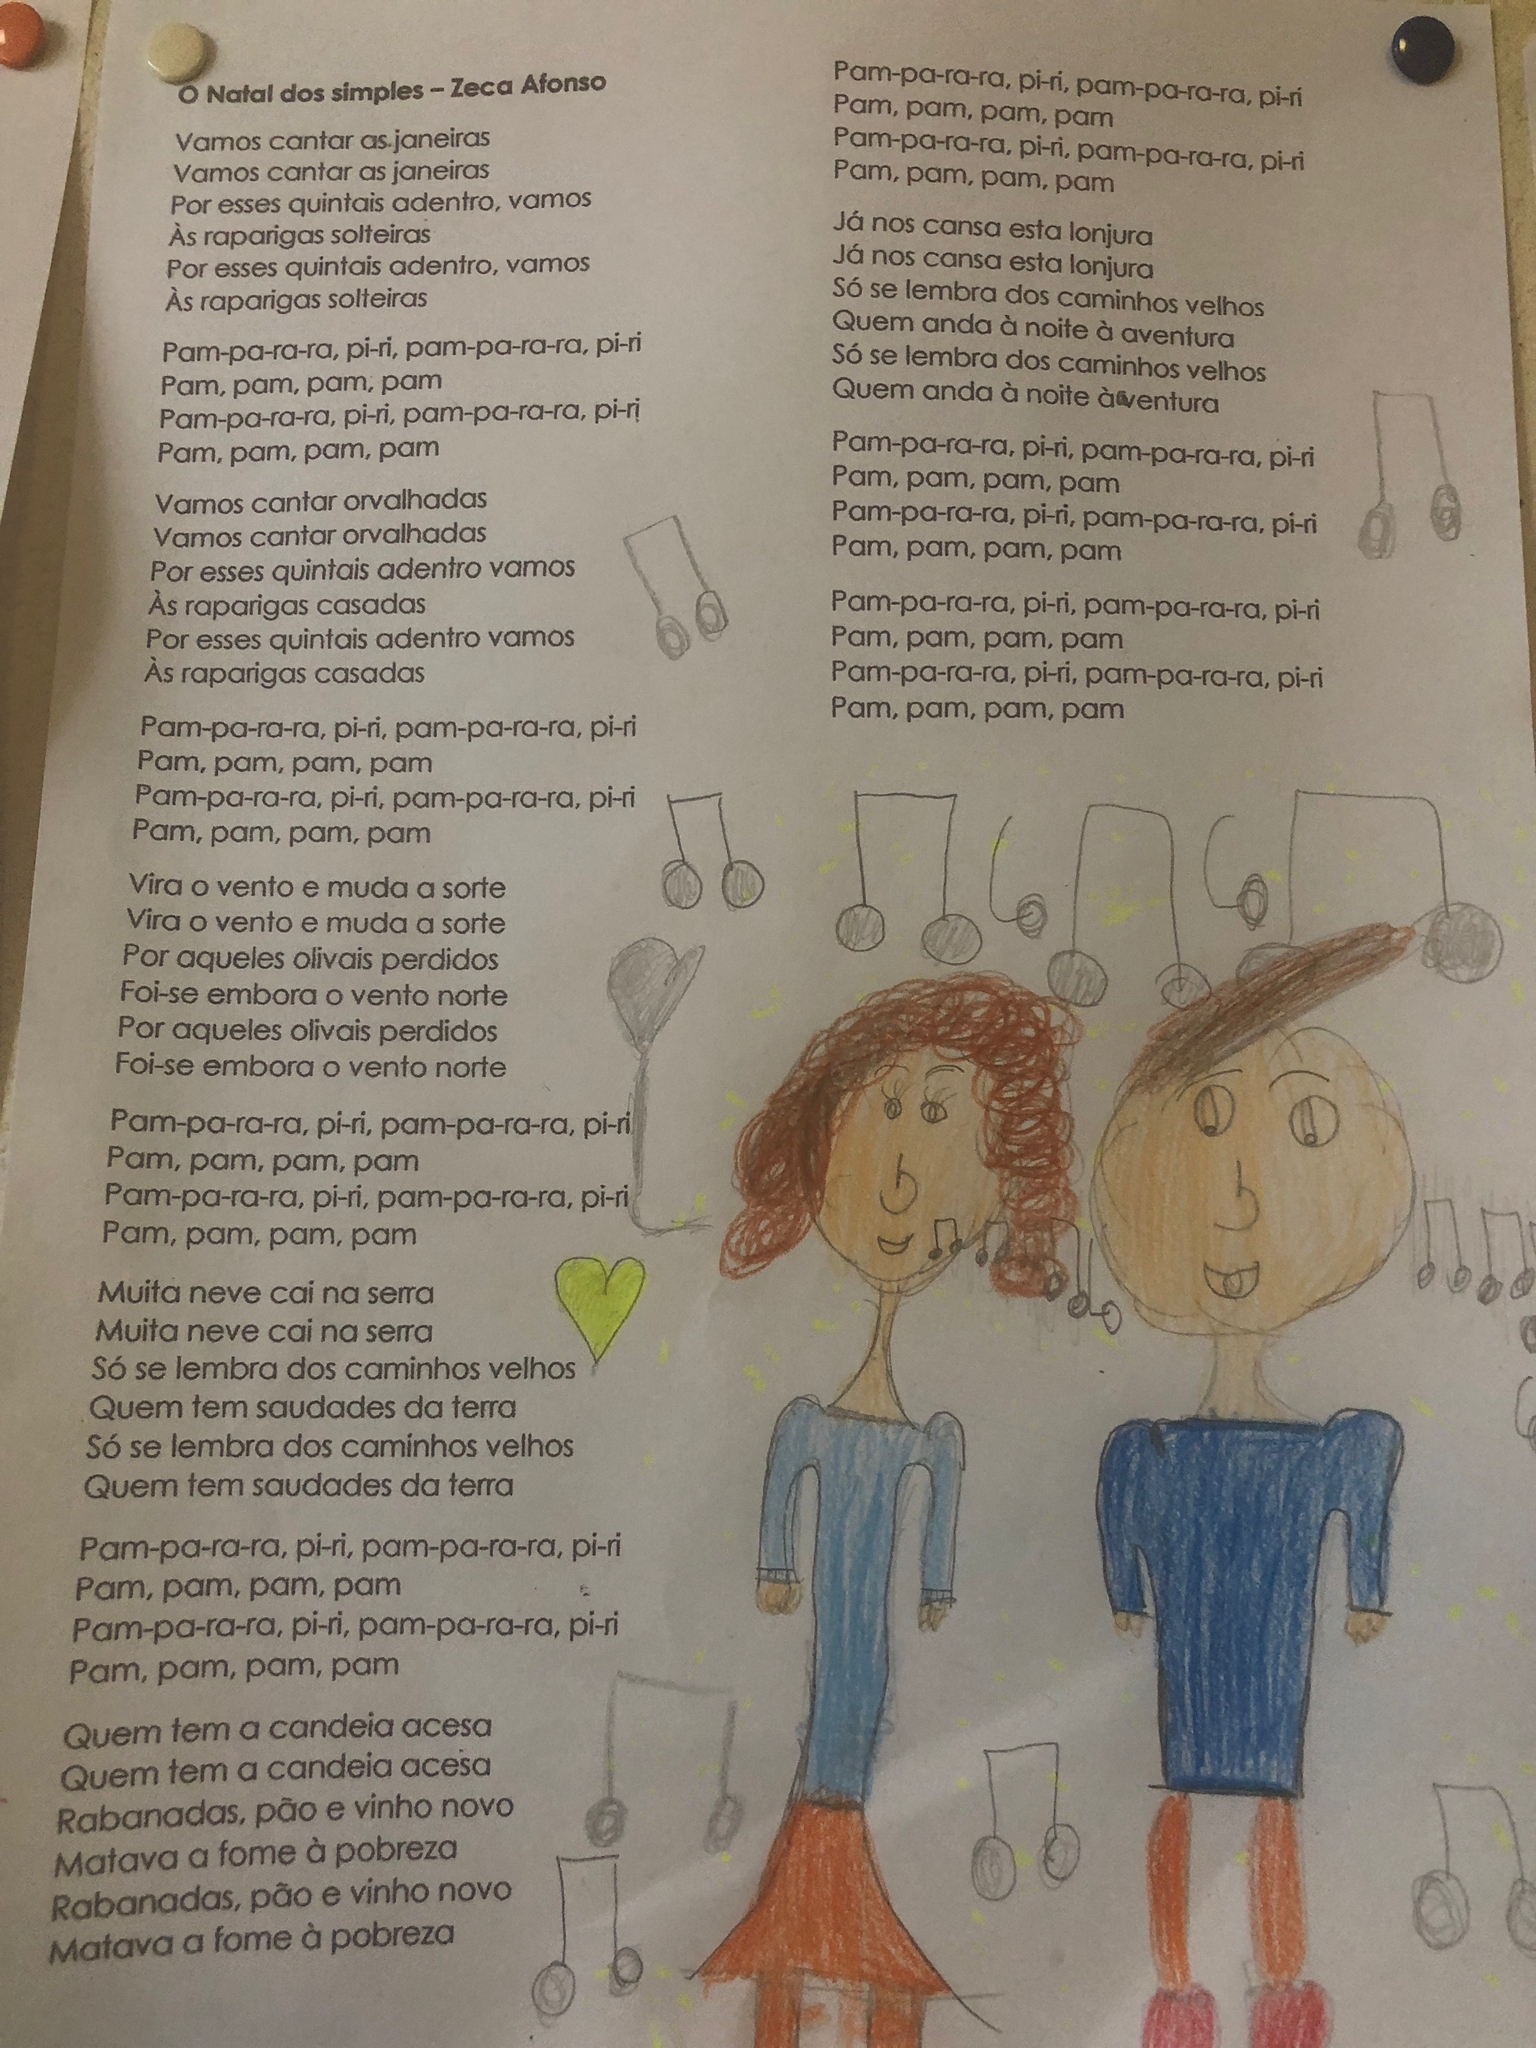 O Natal dos simples – Zeca Afonso
Vamos cantar as janeiras
Vamos cantar as janeiras
Por esses quintais adentro, vamos
Às raparigas solteiras
Por esses quintais adentro, vamos
Às raparigas solteiras
Pam-pa-ra-ra, pi-ri, pam-pa-ra-ra, pi-ri
Pam, pam, pam, pam
Pam-pa-ra-ra, pi-ri, pam-pa-ra-ra, pi-ri
Pam, pam, pam, pam
Vamos cantar orvalhadas
Vamos cantar orvalhadas
Por esses quintais adentro vamos
Às raparigas casadas
Por esses quintais adentro vamos
Às raparigas casadas
Pam-pa-ra-ra, pi-ri, pam-pa-ra-ra, pi-ri
Pam, pam, pam, pam
Pam-pa-ra-ra, pi-ri, pam-pa-ra-ra, pi-ri
Pam, pam, pam, pam
Vira o vento e muda a sorte
Vira o vento e muda a sorte
Por aqueles olivais perdidos
Foi-se embora o vento norte
Por aqueles olivais perdidos
Foi-se embora o vento norte
Pam-pa-ra-ra, pi-ri, pam-pa-ra-ra, pi-ri
Pam, pam, pam, pam
Pam-pa-ra-ra, pi-ri, pam-pa-ra-ra, pi-ri
Pam, pam, pam, pam
Muita neve cai na serra
Muita neve cai na serra
Só se lembra dos caminhos velhos
Quem tem saudades da terra
Só se lembra dos caminhos velhos
Quem tem saudades da terra
Pam-pa-ra-ra, pi-ri, pam-pa-ra-ra, pi-ri
Pam, pam, pam, pam
Pam-pa-ra-ra, pi-ri, pam-pa-ra-ra, pi-ri
Pam, pam, pam, pam
Quem tem a candeia acesa
Quem tem a candeia acesa
Rabanadas, pão e vinho novo
Matava a fome à pobreza
Rabanadas, pão e vinho novo
Matava a fome à pobreza
Pam-pa-ra-ra, pi-ri, pam-pa-ra-ra, pi-ri
Pam, pam, pam, pam
Pam-pa-ra-ra, pi-ri, pam-pa-ra-ra, pi-ri
Pam, pam, pam, pam
Já nos cansa esta lonjura
Já nos cansa esta lonjura
Só se lembra dos caminhos velhos
Quem anda à noite à aventura
Só se lembra dos caminhos velhos
Quem anda à noite à aventura
Pam-pa-ra-ra, pi-ri, pam-pa-ra-ra, pi-ri
Pam, pam, pam, pam
Pam-pa-ra-ra, pi-ri, pam-pa-ra-ra, pi-ri
Pam, pam, pam, pam
Pam-pa-ra-ra, pi-ri, pam-pa-ra-ra, pi-ri
Pam, pam, pam, pam
Pam-pa-ra-ra, pi-ri, pam-pa-ra-ra, pi-ri
Pam, pam, pam, pam